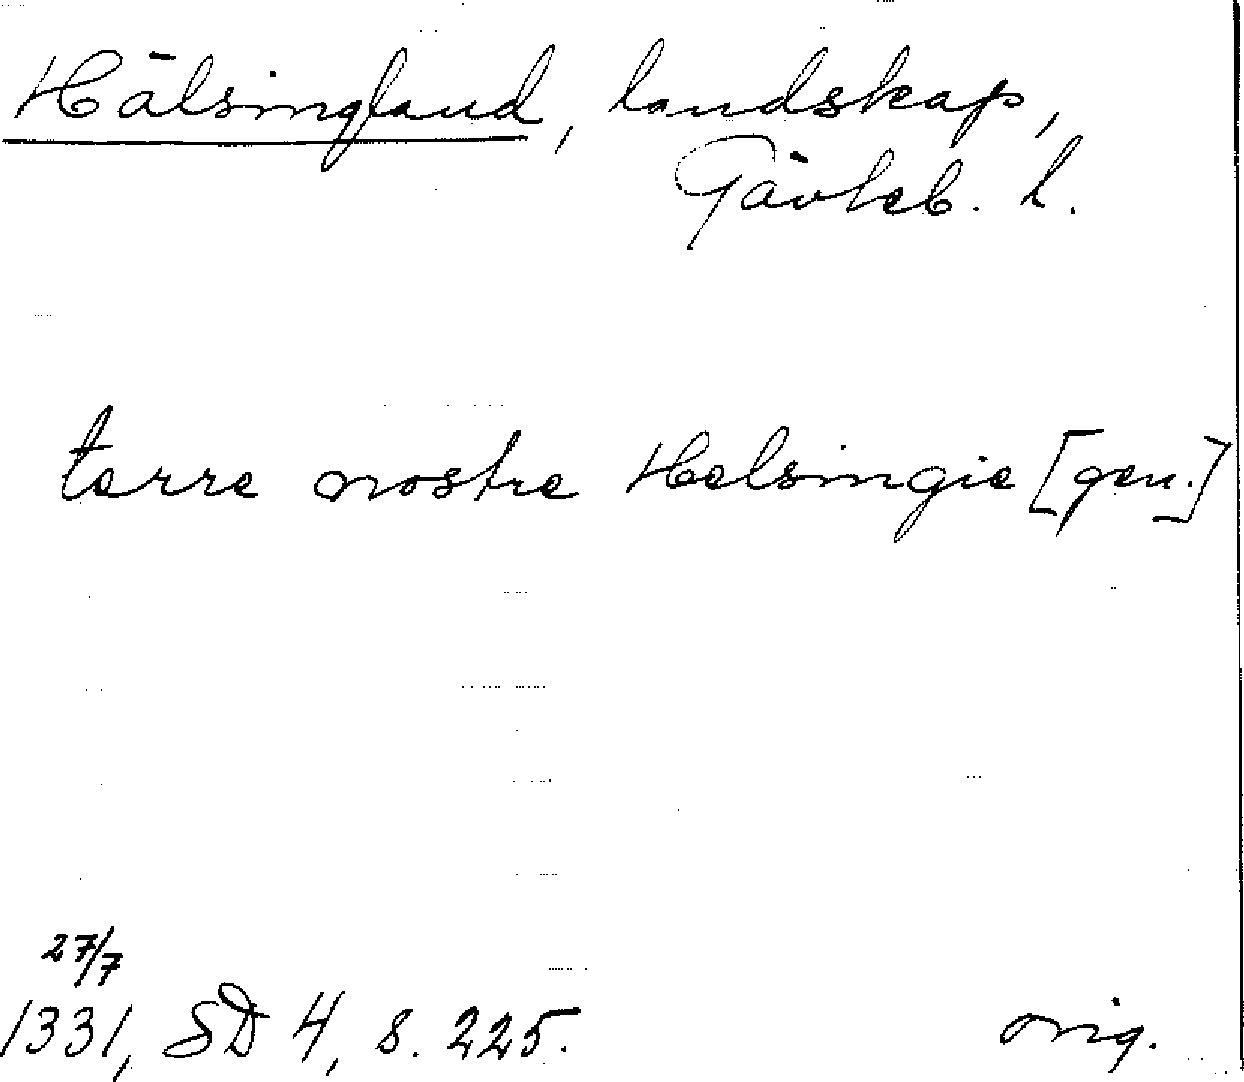 Hälsingland, landskap,
Gävleb. l.
terre nostre Helsingie [gen.]
27/7
1331, SD 4, s. 225.
orig.